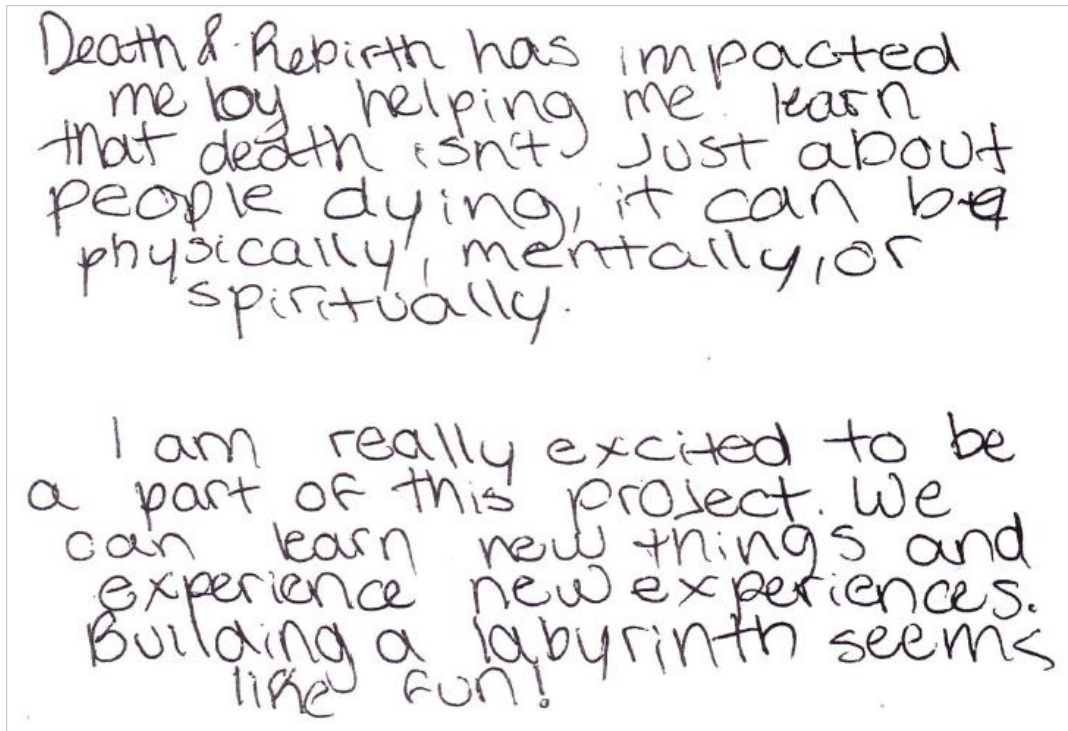 Death & Rebirth has impacted
me by helping me learn
that death isn't just about
people dying, it can be
physically, mentally, or
spiritually.
I am really excited to be
a part of this project. We
can learn new things and
experience new experiences.
Building a labyrinth seems
like fun!